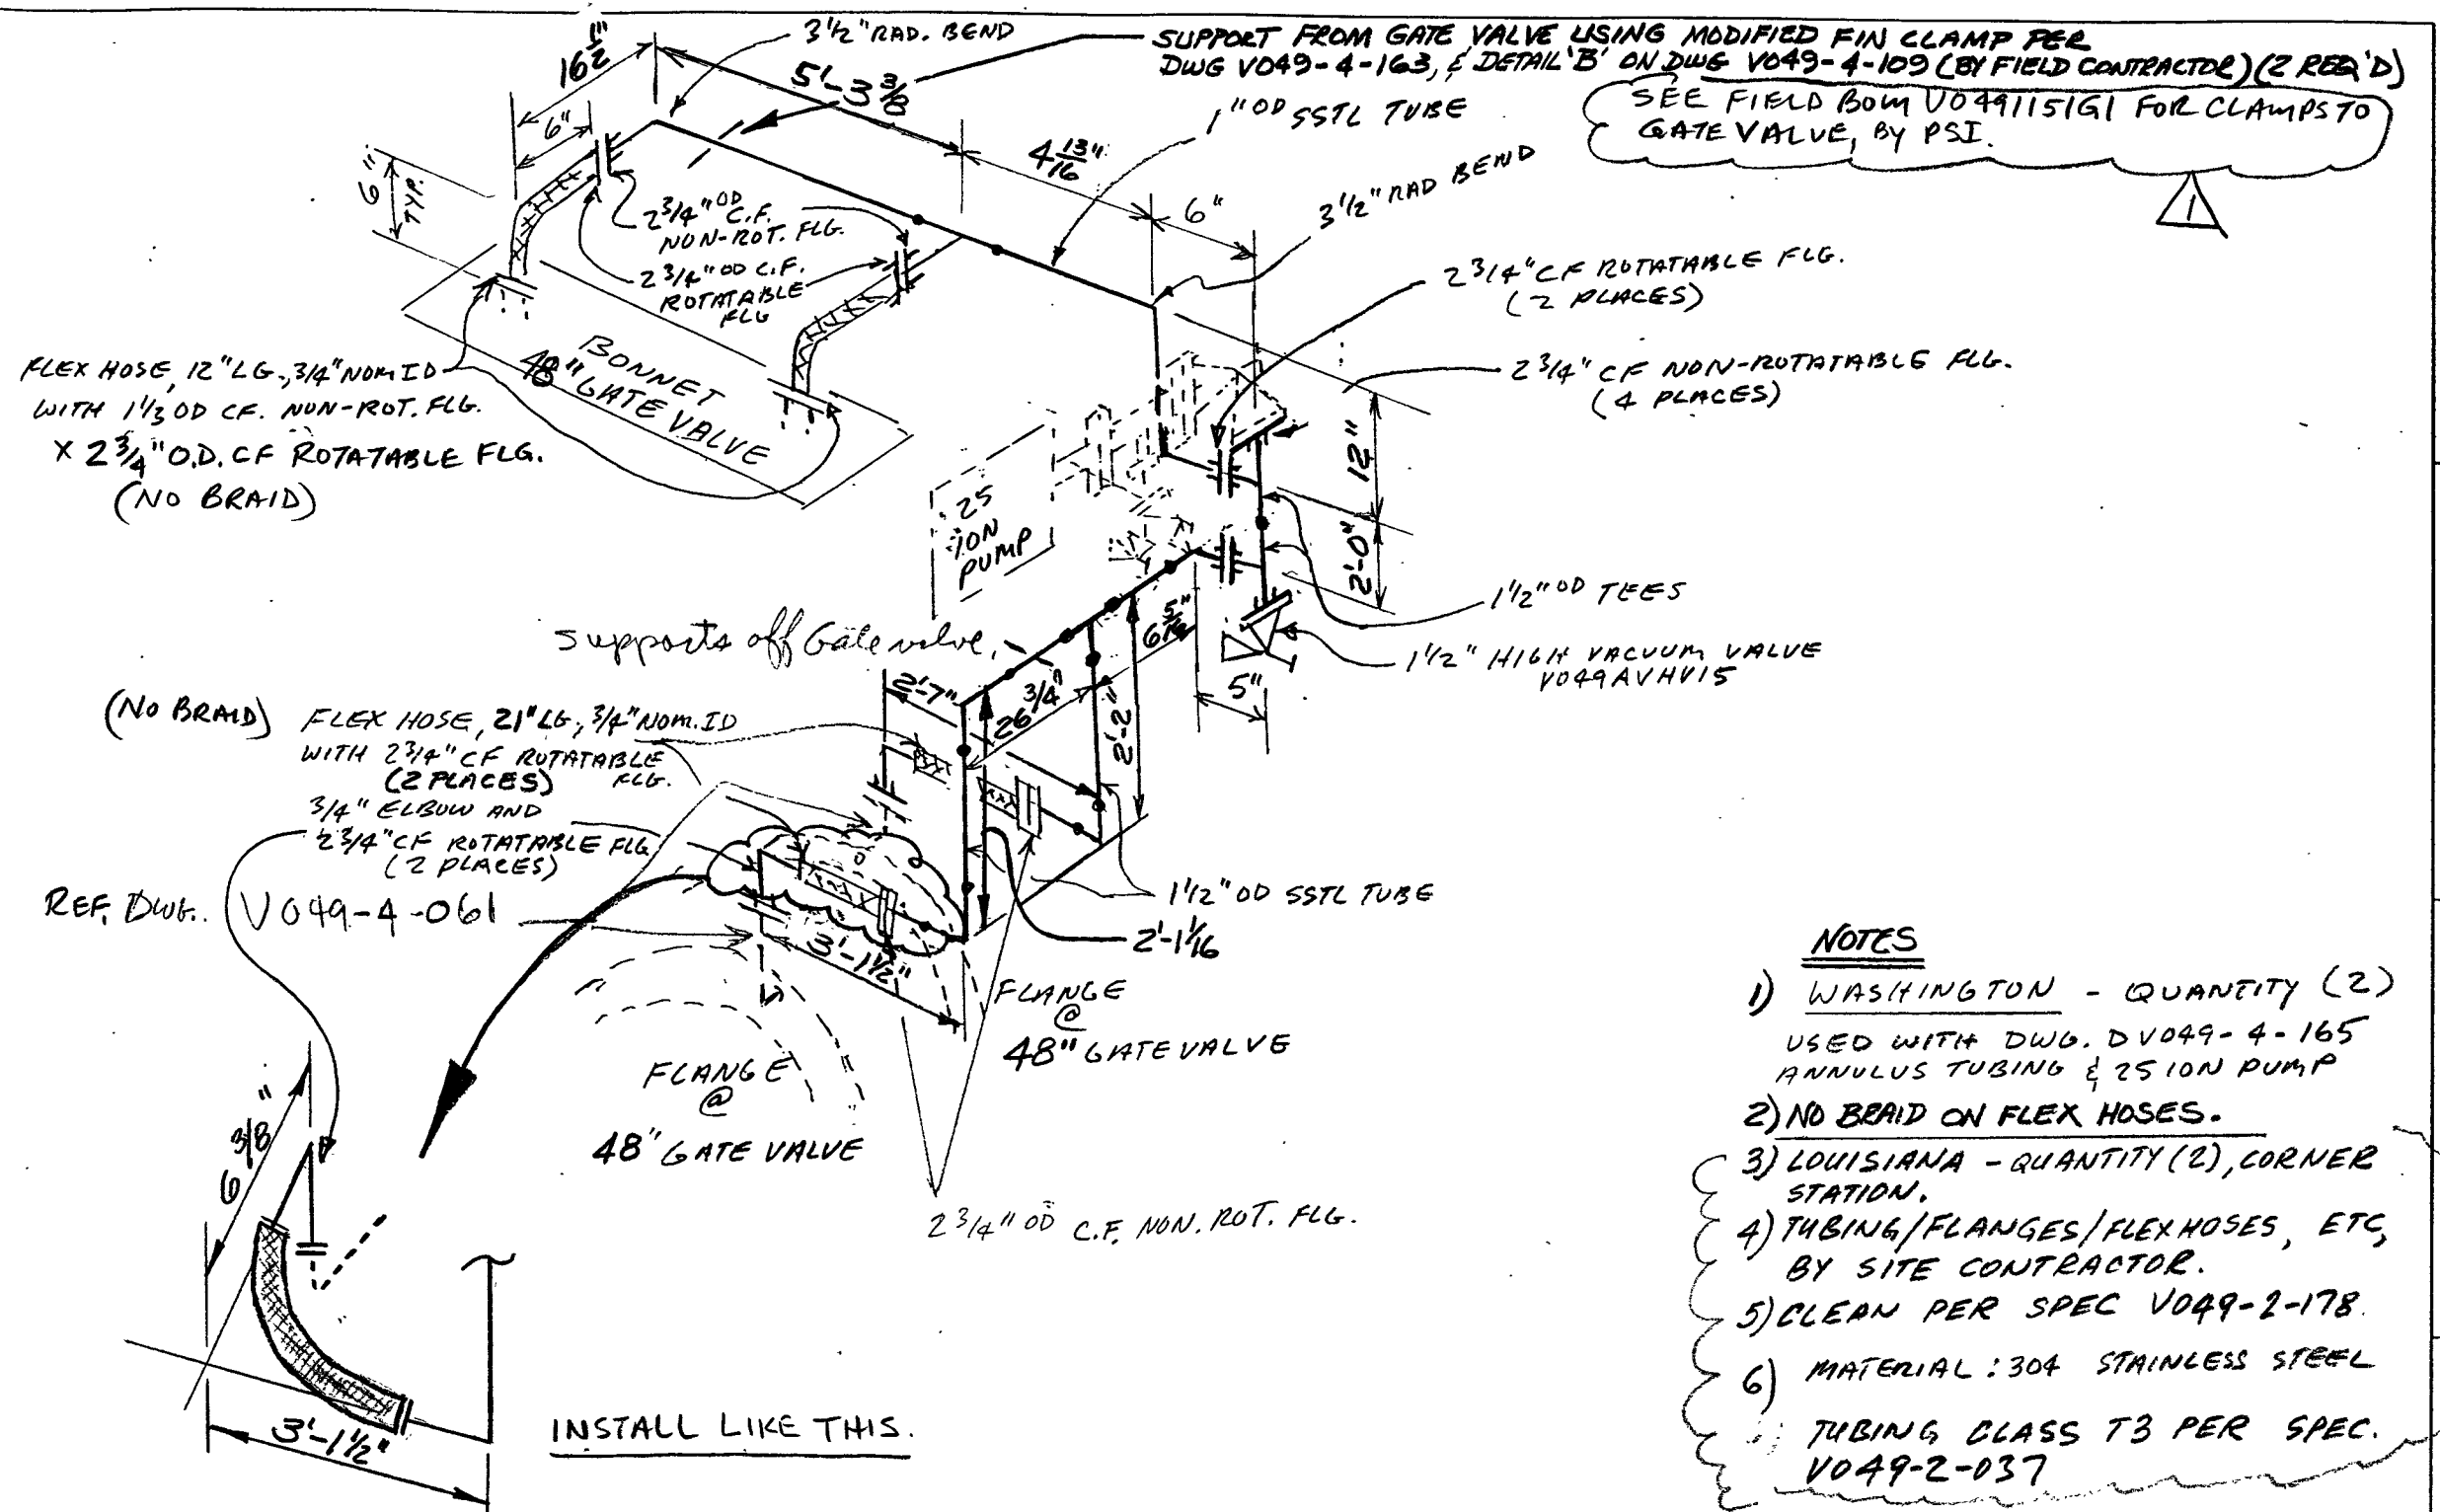 16 1/2"
3 1/2" RAD. BEND
SUPPORT FROM GATE VALVE USING MODIFIED FIN CLAMP PER
DWG V049-4-163, & DETAIL 'B' ON DWG V049-4-109 (BY FIELD CONTRACTOR) (2 REQ'D)
SEE FIELD BOM V0491151G1 FOR CLAMPS TO
GATE VALVE, BY PSI.
1
5'-3 3/8
1" OD SSTL TUBE
4 13/16"
6"
3 1/2" RAD BEND
6"
6"
TYP.
2 3/4" OD C.F.
NON-ROT. FLG.
2 3/4" OD C.F.
ROTATABLE
FLG
2 3/4" CF ROTATABLE FLG.
(2 PLACES)
2 3/4" CF NON-ROTATABLE FLG.
(4 PLACES)
BONNET
48" GATE VALVE
FLEX HOSE, 12" LG., 3/4" NOM ID
WITH 1 1/3 OD CF. NON-ROT. FLG.
X 2 3/4" O.D. CF ROTATABLE FLG.
(NO BRAID)
25
ION
PUMP
12"
2'-0"
1 1/2" OD TEES
1 1/2" HIGH VACUUM VALVE
V049AVHV15
5"
supports off Gate valve.
2'-7"
26 3/4"
2'-2"
(NO BRAID)
FLEX HOSE, 21" LG., 3/4" NOM. ID
WITH 2 3/4" CF ROTATABLE
(2 PLACES) FLG.
3/4" ELBOW AND
2 3/4" CF ROTATABLE FLG
(2 PLACES)
REF. DWG. V049-4-061
1 1/2" OD SSTL TUBE
2'-1 1/16
3'-1 1/2"
FLANGE
@
48" GATE VALVE
FLANGE
@
48" GATE VALVE
2 3/4" OD C.F. NON. ROT. FLG.
6 3/8"
3'-1 1/2"
INSTALL LIKE THIS.
NOTES
1) WASHINGTON - QUANTITY (2)
USED WITH DWG. DV049-4-165
ANNULUS TUBING & 25 ION PUMP
2) NO BRAID ON FLEX HOSES.
3) LOUISIANA - QUANTITY (2), CORNER
STATION.
4) TUBING/FLANGES/FLEX HOSES, ETC,
BY SITE CONTRACTOR.
5) CLEAN PER SPEC V049-2-178.
6) MATERIAL: 304 STAINLESS STEEL
TUBING CLASS T3 PER SPEC.
V049-2-037